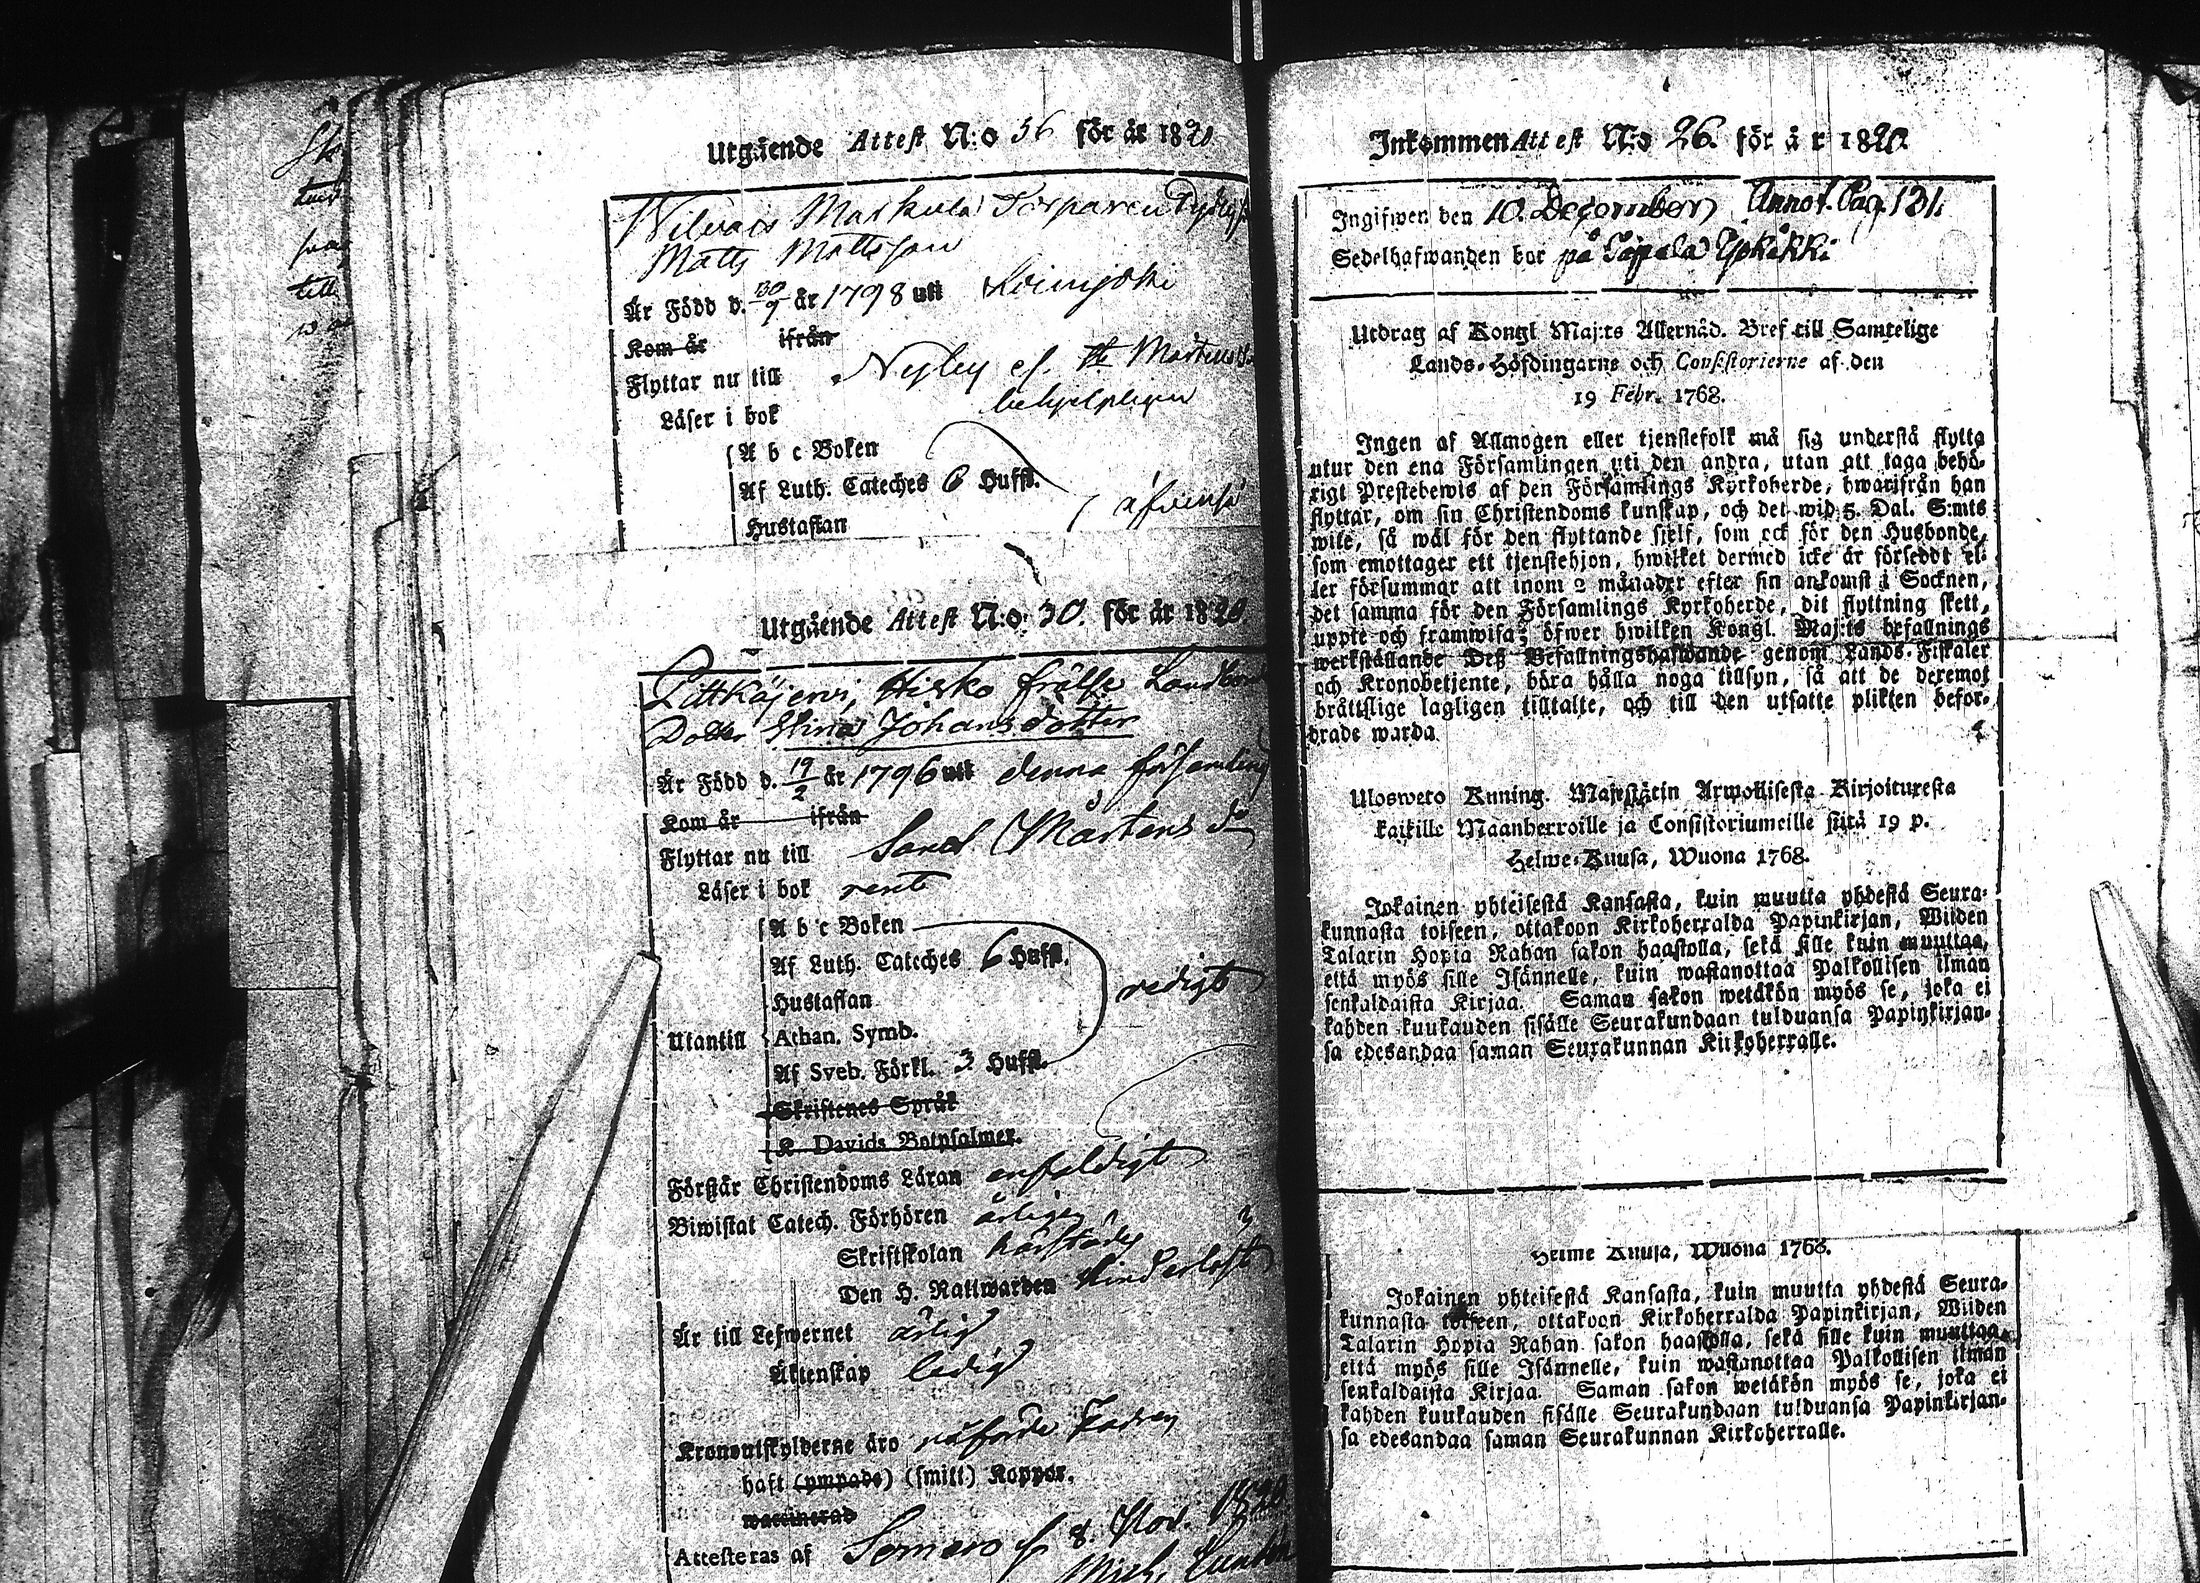 Utgående Attest N:o 36 för år 1820
Wiluais Markula Torparen
Matts Mattsson
Är Född d. 30/9 år 1798 uti Koimjoki
Kom år ifrån
Flyttar nu till Nyby
Läser i bok behjelpligen
A b c Boken
Af Luth. Cateches 6 Huffst.
Hustaflan
Utgående Attest N:o 30. för år 1820
Pittkäjerwi, Hisko frälse
Dotter Stina Johansdotter
Är Född d. 19/2 år 1796 uti denna församling
Kom år ifrån
Flyttar nu till Sanct Mårtens
Läser i bok rent
A b c Boken
Af Luth. Cateches 6 Huffst.
Hustaflan
redigt
Utantill Athan. Symb.
Af Sveb. Förkl. 3 Huffst.
Skriftenes Språk
K Davids Botpsalmer.
Förstår Christendoms Läran enfaldigt
Biwistat Catech. Förhören årligen
Skriftskolan härstädes
Den H. Nattwarden
Är till Lefwernet ärlig
Äktenskap ledig
Kronoutskylderne äro
haft (ympade) (smitt) Koppor.
waccinerad
Attesteras af Somero 8. Nov. 1820
Mich.
Inkommen Attest N:o 26. för år 1820.
Ingifwen den 10. December Annot. Pag. 131.
Sedelhafwanden bor på Tåpala Ypkäkki
Utdrag af Kongl Maj:ts Allernåd. Bref till Samtelige
Lands-Höfdingarne och Consistorierne af den
19 Febr. 1768.
Ingen af Allmogen eller tjenstefolk må sig understå flytta
utur den ena Församlingen uti den andra, utan att taga behö-
rigt Prestebewis af den Församlings Kyrkoherde, hwarifrån han
flyttar, om sin Christendoms kunskap, och det wid 5. Dal. S:mts
wite, så wäl för den flyttande sjelf, som ock för den Husbonde,
som emottager ett tjenstehjon, hwilket dermed icke är försedt el-
ler försummar att inom 2 månader efter sin ankomst i Socknen,
det samma för den Församlings Kyrkoherde, dit flyttning skett,
uppte och framwisa; öfwer hwilken Kongl. Maj:ts befallnings
werkställande Deß Befallningshafwande genom Lands-Fiskaler
och Kronobetjente, böra hålla noga tillsyn, så att de deremot
bråttslige lagligen tilltalte, och till den utsatte plikten befor-
drade warda
Ulosweto Kuning. Majestätin Armollisesta Kirjoituxesta
kaikille Maanherroille ja Consistoriumeille siitä 19 p.
Helme-Kuusa, Wuona 1768.
Jokainen yhteisestä Kansasta, kuin muutta yhdestä Seura-
kunnasta toiseen, ottakoon Kirkoherralda Papinkirjan, Wiiden
Talarin Hopia Rahan sakon haastolla, sekä sille kuin muuttaa,
että myös sille Isännelle, kuin wastanottaa Palkollisen ilman
senkaldaista Kirjaa. Saman sakon wetäkön myös se, joka ei
kahden kuukauden sisälle Seurakundaan tulduansa Papinkirjan-
sa edesandaa saman Seurakunnan Kirkoherralle.
Helme Kuusa, Wuona 1768.
Jokainen yhteisestä Kansasta, kuin muutta yhdestä Seura-
kunnasta toiseen, ottakoon Kirkoherralda Papinkirjan, Wiiden
Talarin Hopia Rahan sakon haastolla, sekä sille kuin muuttaa,
että myös sille Isännelle, kuin wastanottaa Palkollisen ilman
senkaldaista Kirjaa. Saman sakon wetäkön myös se, joka ei
kahden kuukauden sisälle Seurakundaan tulduansa Papinkirjan-
sa edesandaa saman Seurakunnan Kirkoherralle.